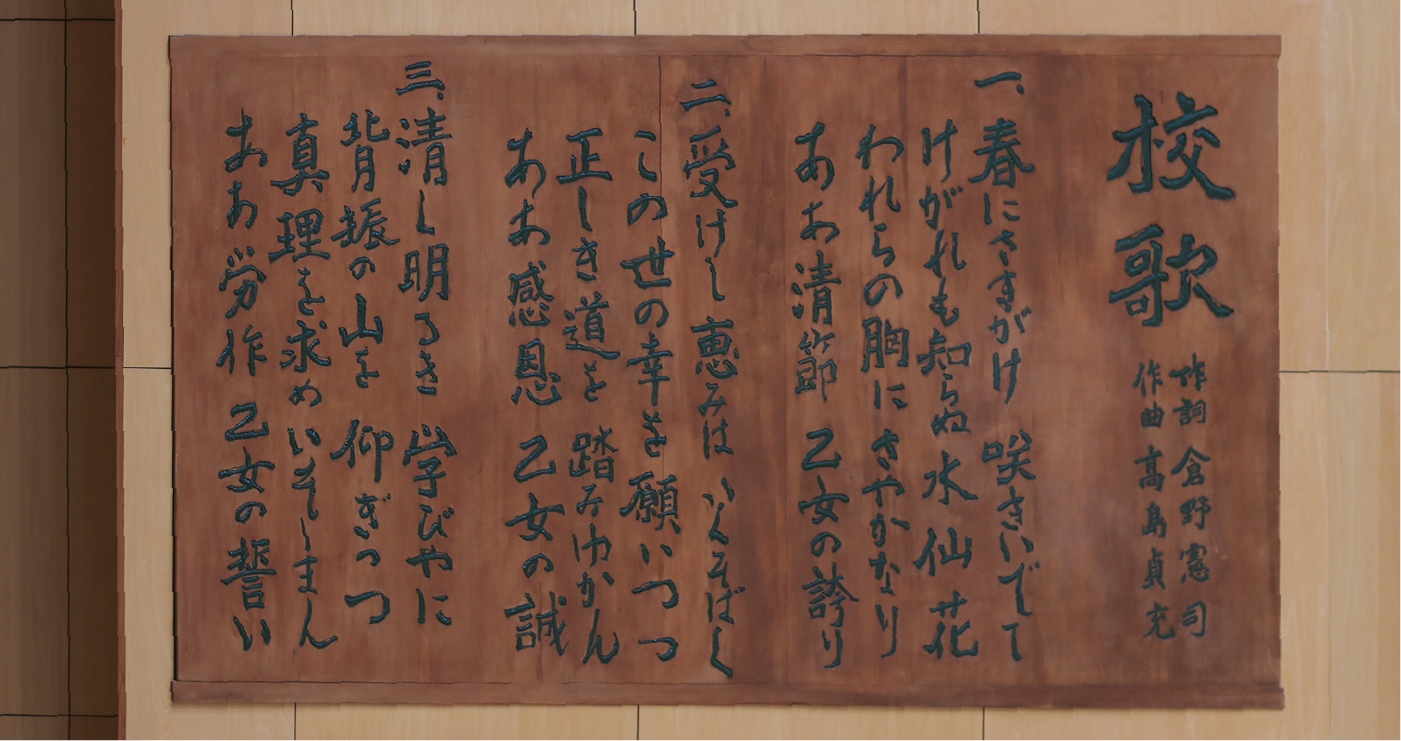 校歌
作詞 倉野憲司
作曲 高島貞充
一、春にさきがけ 咲きいでて
けがれも知らぬ 水仙花
われらの胸に さやかなり
ああ清節 乙女の誇り
二、受けし恵みは いくそばく
この世の幸を 願いつつ
正しき道を 踏みゆかん
ああ感恩 乙女の誠
三、清し明るき 学びやに
背振の山を 仰ぎつつ
真理を求め いそしまん
ああ労作 乙女の誓い